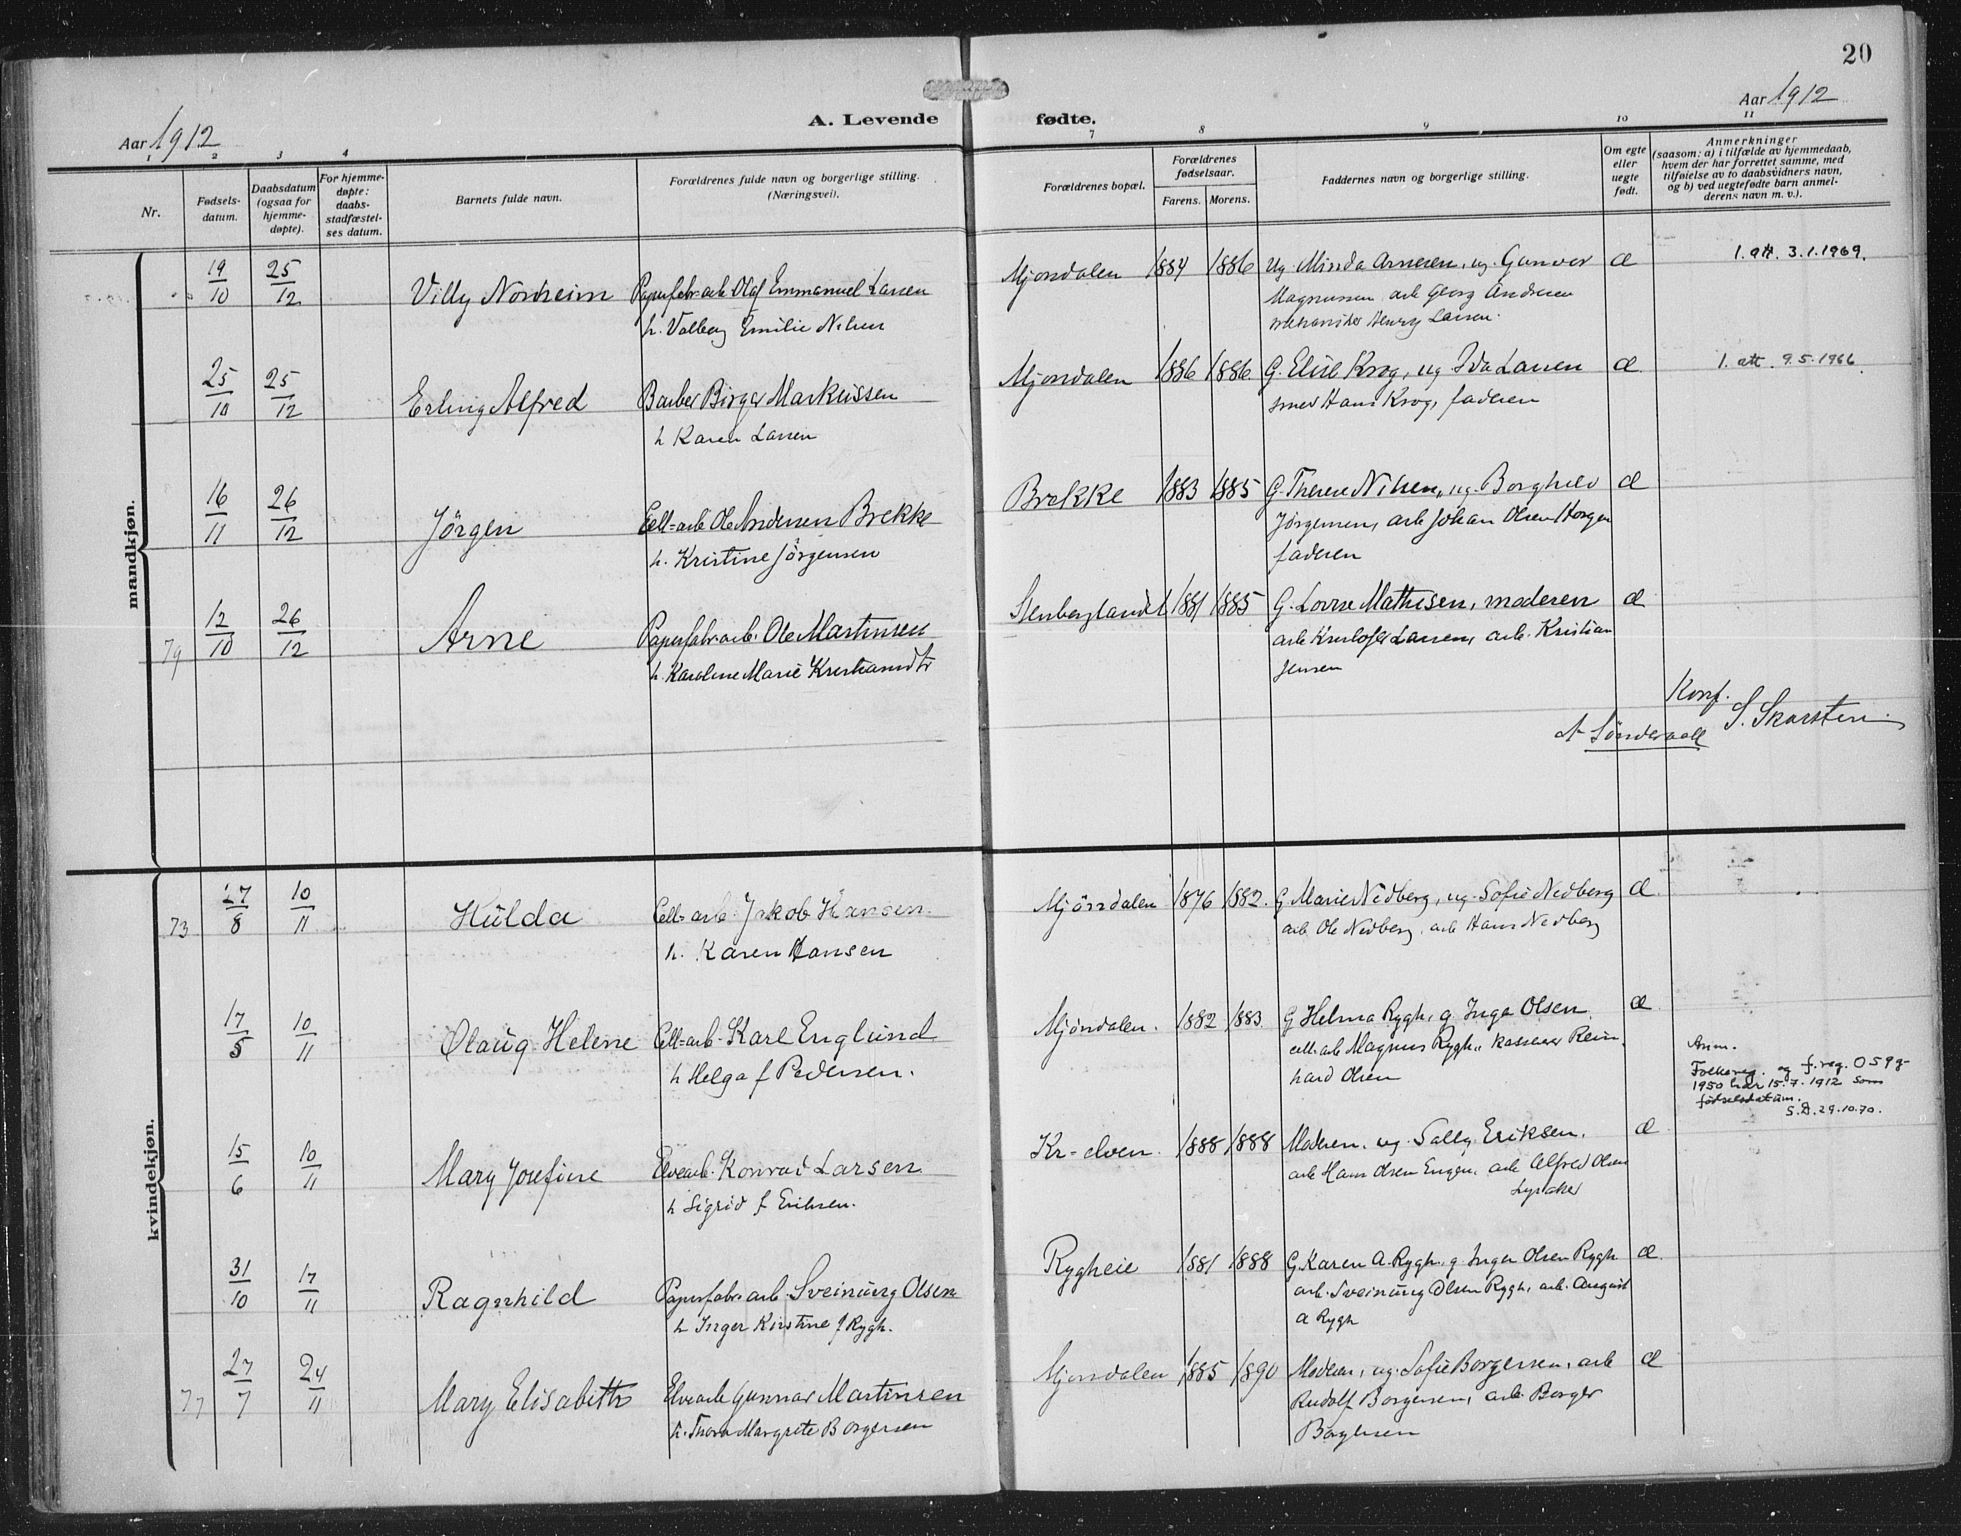 20
Aar 1912
A. Levende fødte.
Aar 1912
1 2 3 4 7 8 9 10 11
Nr.
Fødsels-
datum.
Daabsdatum
(ogsaa for
hjemme-
døpte).
For hjemme-
døpte:
daabs-
stadfæstel-
ses datum.
Barnets fulde navn.
Forældrenes fulde navn og borgerlige stilling.
(Næringsvei).
Forældrenes bopæl.
Forældrenes
fødselsaar.
Farens. Morens.
Faddernes navn og borgerlige stilling.
Om egte
eller
uegte
født.
Anmerkninger
(saasom: a) i tilfælde av hjemmedaab,
hvem der har forrettet samme, med
tilføielse av to daabsvidners navn,
og b) ved uegtefødte barn anmel-
derens navn m. v.).
mandkjøn.
19/10 25/12 Villy Norheim Papirfabr.arb. Olaf Emmanuel Larsen
h. Valborg Emilie Nilsen
Mjøndalen 1884 1886 ug. Minda Arnesen, ug. Gunvor æ 1. att. 3.1.1969.
Magnussen arb Georg Andresen
Henry Larsen.
25/10 25/12 Erling Alfred Barber Birger Markussen
h Karen Larsen
Mjondalen 1886 1886 G. Elise Krog, ug Ida Larsen æ 1. att. 9.5.1966.
smed Hans Krog, faderen
16/11 26/12 Jörgen Cell=arb Ole Andersen Brekke
h. Kristine Jørgensen
Brekke 1883 1885 G. Therese Nilsen, ug. Borghild æ
Jørgensen, arb Johan Olsen Horgen
faderen
79 12/10 26/12 Arne Papirfabr.arb. Ole Martinsen
h. Karoline Marie Kristiansdtr
Stenberglandet 1881 1885 G. Lovise Mathisen, moderen æ
arb Kristofer Larsen, arb. Kristian
Jensen
Konf.
S. Skarsten.
A Söndervall
kvindekjøn.
73 27/8 10/11 Hulda Cell=arb. Jakob Hansen.
h. Karen Hansen
Mjöndalen 1876 1882. G Marie Nedberg, ug. Sofie Nedberg æ.
arb Ole Nedberg, arb Hans Nedberg
17/5 10/11 Olaug Helene Cell=arb. Karl Englund
h Helga f Pedersen.
Mjöndalen. 1882 1883. G Helma Rygh, g. Inga Olsen. æ.
cell-arb Magnus Rygh, kasserer Rein-
hard Olsen
Anm.
Folkereg. og f.reg. 059g-
1950 har 15.7.1912 som
fødselsdatum.
S.D. 29.10.70.
15/6 10/11 Mary Josefine Elvearb. Konrad Larsen
h Sigrid f Eriksen.
Kr-elven. 1888 1888 Moderen, ug. Sally Eriksen, æ
arb Hans Olsen Engen, arb Alfred Olsen
Lysaker
31/10 17/11 Ragnhild Papirfabr arb. Sveinung Olsen
h Inger Kirstine f Rygh.
Rygheie 1881 1888 G. Karen A. Rygh, g. Inger Olsen Rygh æ.
arb. Sveinung Olsen Rygh, arb. August
A Rygh
77 27/7 24/11 Mary Elisabeth Elvearb Gunnar Martinsen
h. Thora Margrete Borgersen
Mjøndalen 1885 1890 Moderen, ug. Sofie Borgersen, arb æ
Rudolf Borgersen, arb. Borger
Borgersen